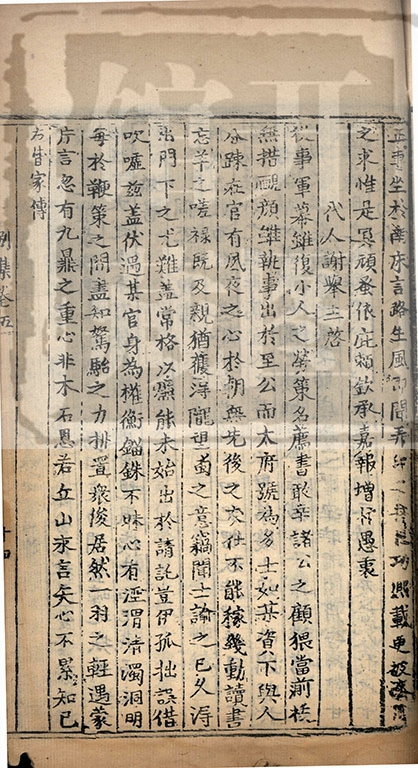 正事生於 床言路生風 聞弄印之 功 載更被
之求惟是冥頑 依庇賴欽承嘉報增忭愚衷
代人謝舉主啓
從事軍幕雖復小人之勞策名薦書敢辛諸公之顧猥當前
無措靦頳雖執事出於至公而大府號為多士如某資下與人
分踈在官有夙夜之心於朝無先後之交仕不能稼幾動讀書
忘羊之嗟祿既及親猶獲淂隴望蜀之意竊聞士論之已久淂
出門下之尤難蓋常格以羈能未始出於請託豈伊孤拙誤借
吹噓玆蓋伏遇某官身為權衡錙銖不昧心有涇渭清濁洞明
每於鞭策之間盡知駑駘之力排置衆俊居然一羽之輕遇蒙
片言忽有九鼎之重心非木石恩若丘山永言矢心不累知己
右皆家傳
別集卷五
十四